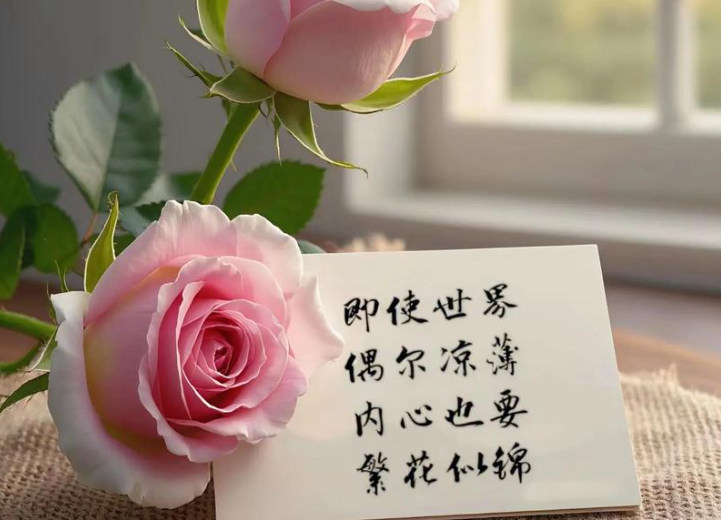 即使世界
偶尔凉薄
内心也要
繁花似锦